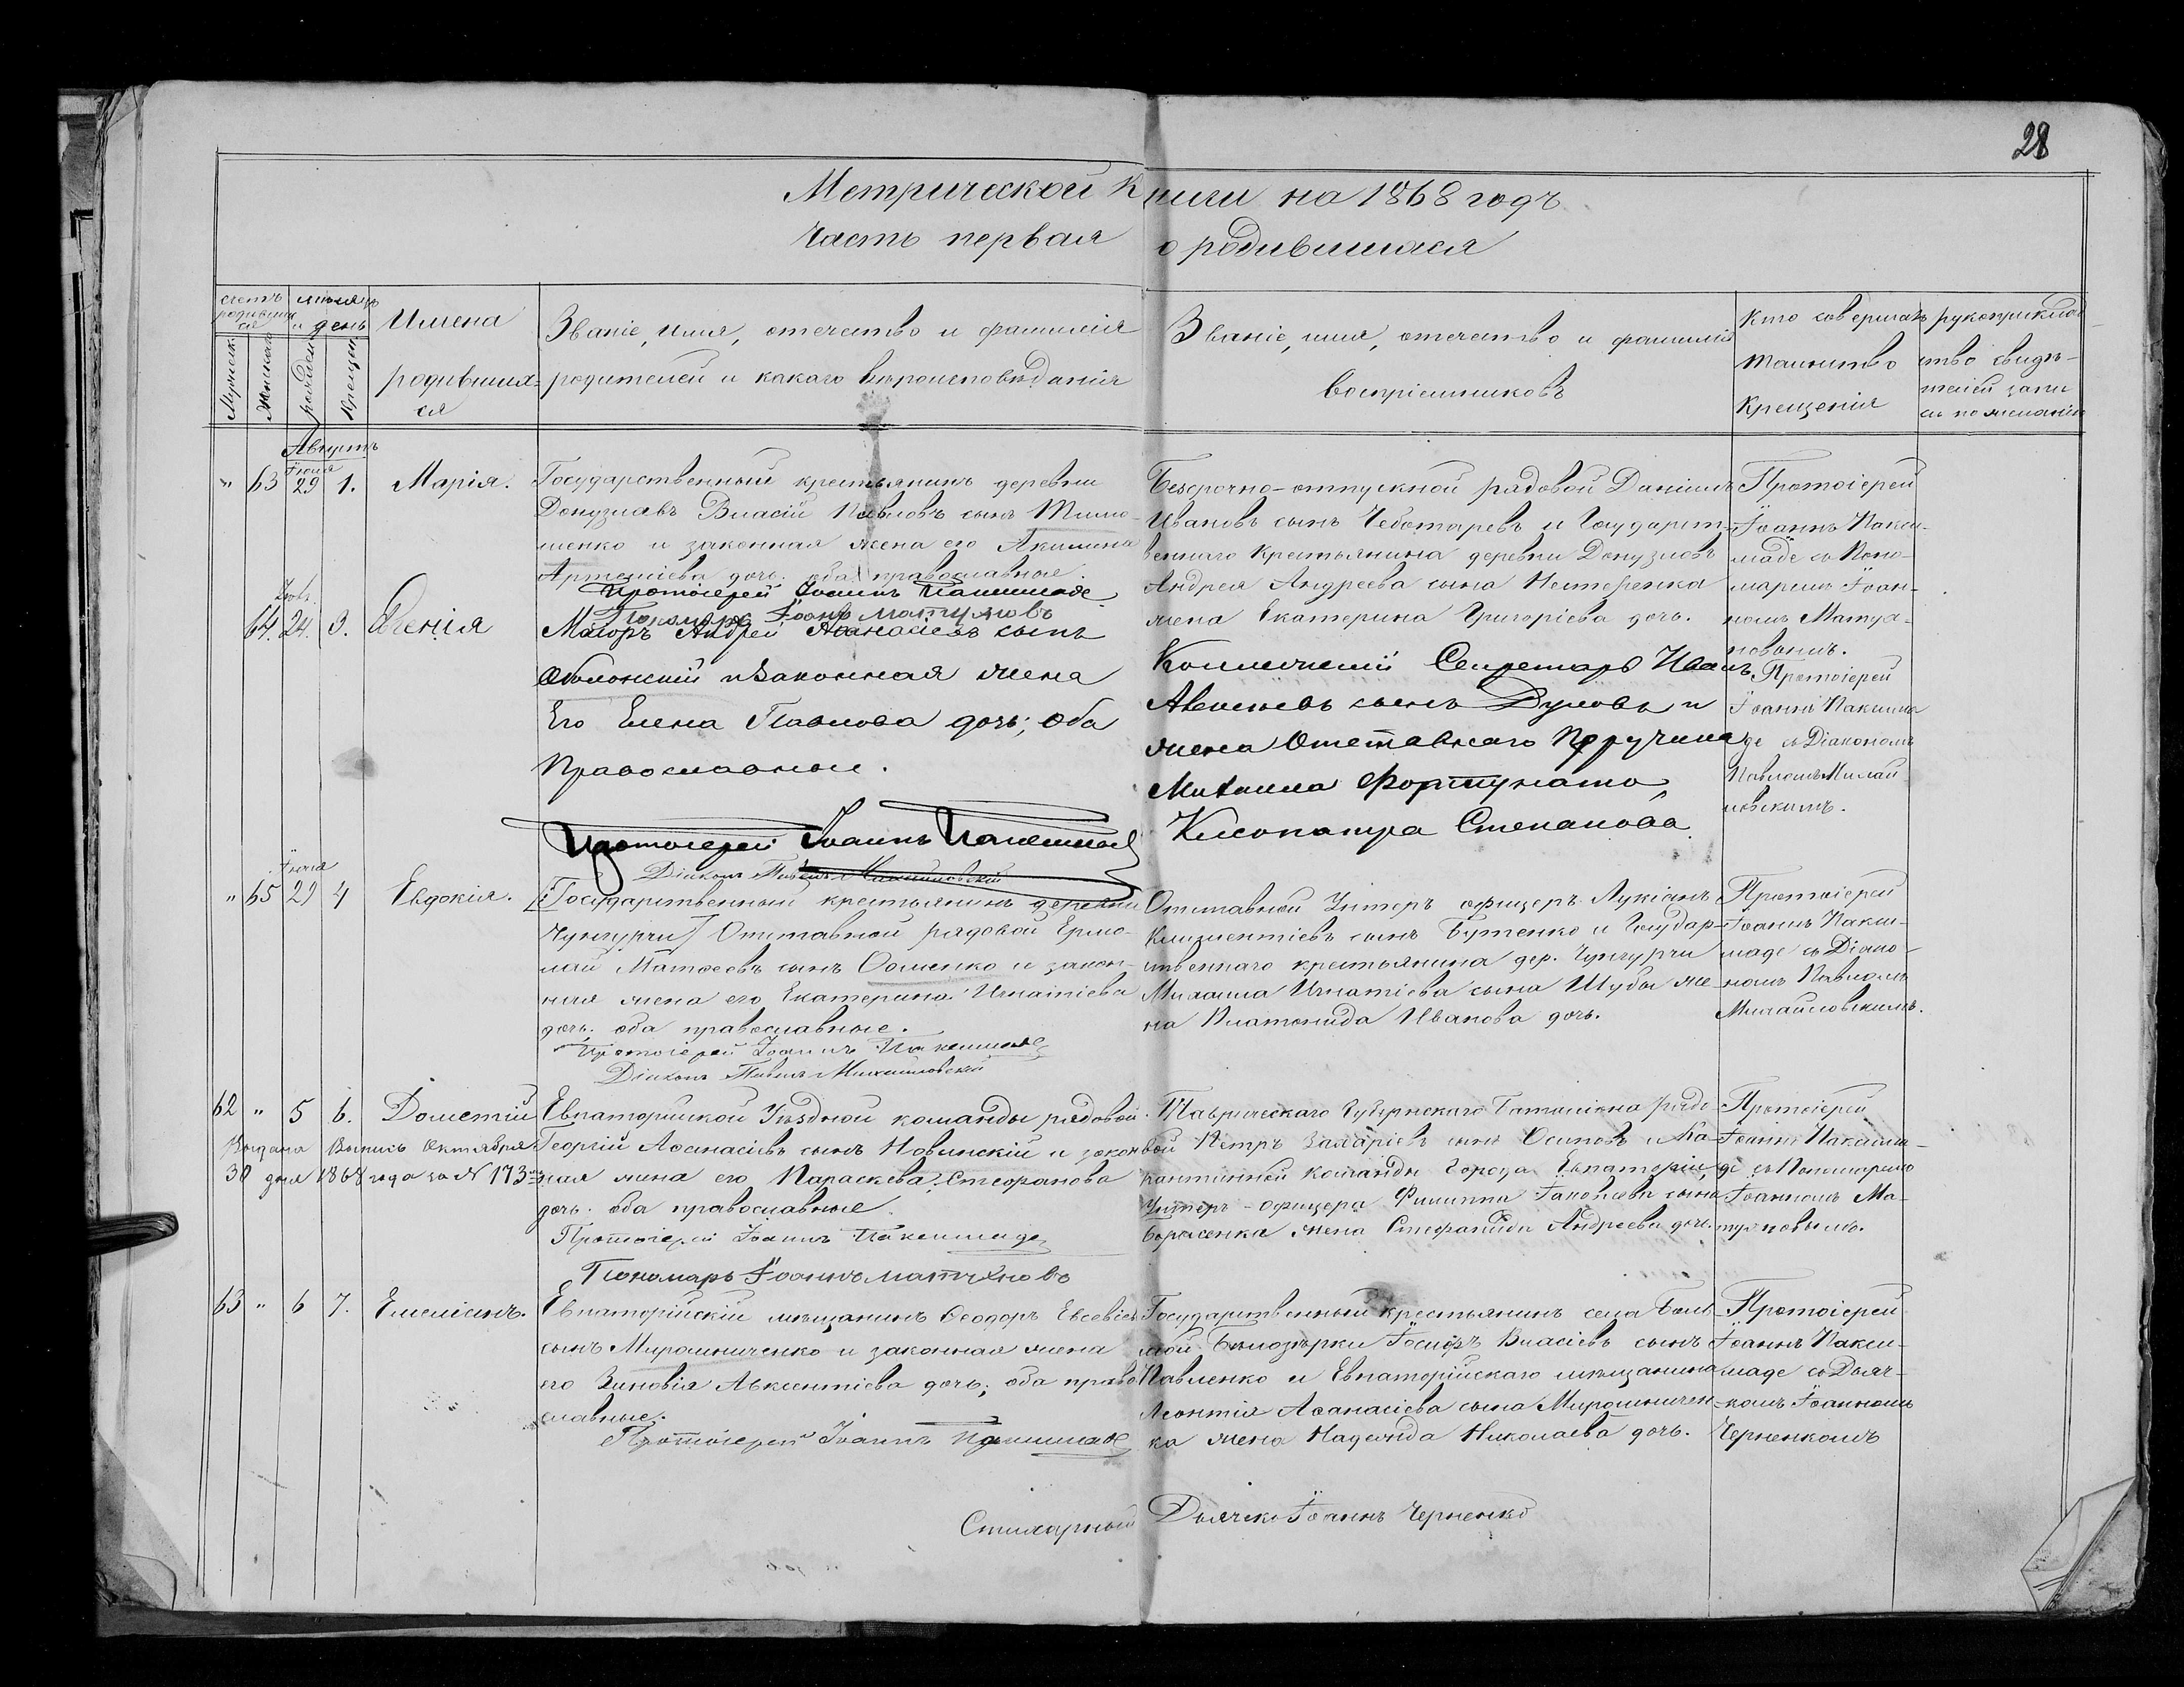 28
Метрической книги на 1868 годъ
Часть первая о родившихся
счетъ родившихся
мѣсяцъ и день
Мужеск.
Женска
рожденія
Крещен
Имена
родившихся
Званіе, имя, отечество и фамилія
родителей и какаго вѣроисповѣданія
Званіе, имя, отечество и фамилія
воспріемниковъ
Кто совершалъ
таинство
крещенія
рукоприклад
ство свидѣ-
телей запи
си по желанію
Августъ
Іюля
" 63 29 1. Марія.
Государственный крестьянинъ деревни
Донузлавъ Власій Павловъ сынъ Тимо-
шенко и законная жена его Акилина
Артеміева дочь. оба православные.
Протоіерей Іоаннъ Пакшмаде
Пономарь Іоаннъ Матуяновъ
Безсрочно-отпускной рядовой Даніилъ
Ивановъ сынъ Чеботаревъ и Государст-
веннаго Крестьянина деревни Донузлавъ
Андрея Андреева сына Нестеренка
жена Екатерина Григоріева дочь.
Протоіерей
Іоаннъ Пакси-
маде съ Поно-
маремъ Іоан-
номъ Матуя-
новымъ.
64. 24. 3. Ксенія
Маіоръ Андрей Аѳанасіевъ сынъ
Оболонскій и Законная жена
Его Елена Павлова дочь; оба
Православные.
Протоіерей Іоаннъ Пакшмаде
Діаконъ Павелъ Михайловскій
Коллежскій Секретарь Иванъ
сынъ Дуловъ и
жена Отставнаго Поручика
Михаила Фортунато,
Клеопатра Степанова
Протоіерей
Іоаннъ Паксима
де съ Діакономъ
Павломъ Михай
ловскимъ.
Іюля
" 65 29 4 Евдокія.
[Государственный крестьянинъ деревни
Чунгурчи] Отставной рядовой Ермо-
лай Матѳеевъ сынъ Ѳоменко и закон-
ная жена его Екатерина Игнатіева
дочь. оба православные.
Протоіерей Іоаннъ Пакшмаде
Діаконъ Павелъ Михайловскій
Отставной Унтеръ офицеръ Лукіанъ
Климентіевъ сынъ Бутенко и Государ-
ственнаго крестьянина дер. Чунгурчи
Михаила Игнатіева сына Шубы же-
на Платонида Иванова дочь.
Протоіерей
Іоаннъ Пакси-
маде съ Діако-
номъ Павломъ
Михайловскимъ.
62 " 5 6. Дометій
Выдана Выпись Октября
30 дня 1868 года за N 173
Евпаторійской Уѣздной команды рядовой
Георгій Аѳанасіевъ сынъ Новинскій и закон
ная жена его Параскева Стефанова
дочь. оба православные.
Протоіерей Іоаннъ Пакшмаде
Пономарь Іоаннъ Матуяновъ
Таврическаго Губернскаго Баталіона рядо
вой Петръ Захаріевъ сынъ Осиповъ и Ка-
рантинной команды Города Евпаторіи,
Унтеръ-офицера Филиппа Іаковлева сына
Борисенка жена Стефанида Андреева дочь.
Протоіерей
Іоаннъ Паксима-
де съ Пономаремъ
Іоанномъ Ма-
туяновымъ.
63 " 6 7. Емеліанъ.
Евпаторійскій мѣщанинъ Ѳеодоръ Евсевіевъ
сынъ Мирошниченко и законная жена
его Зиновія Авксентіева дочь; оба право
славные.
Протоіерей Іоаннъ Пакшмаде
Государственный крестьянинъ села Боль
шой Бѣлозѣрки Іосифъ Власіевъ сынъ
Павленко и Евпаторійскаго мѣщанина
Леонтія Аѳанасіева сына Мирошничен-
ка жена Надежда Николаева дочь.
Протоіерей
Іоаннъ Пакси-
маде съ Дьяч-
комъ Іоанномъ
Черненкомъ
Стихарный Дьячекъ Іоаннъ Черненко